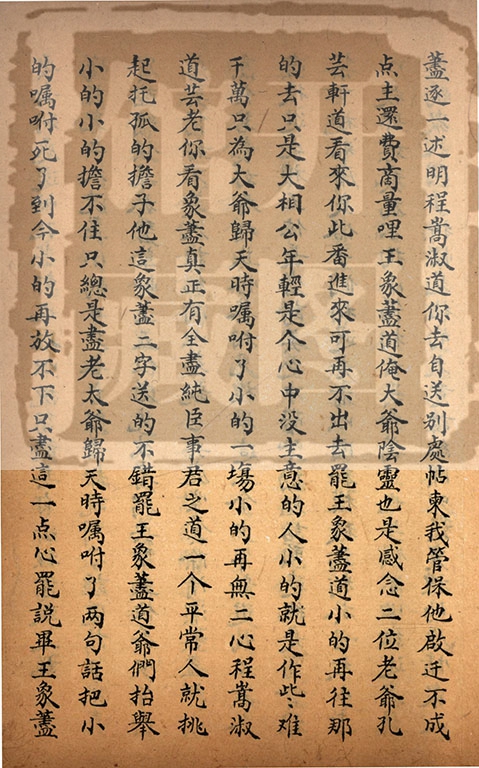 藎逐一述明程嵩淑道你去自送别處帖柬我管保他啟迁不成
点主還費商量哩王象藎道俺大爺陰靈也是感念二位老爺孔
芸軒道看來你此番進來可再不出去罷王象藎道小的再往那
的去只是大相公年輕是个心中没主意的人小的就是作些难
千萬只為大爺歸天時嘱咐了小的一塲小的再無二心程嵩淑
道芸老你看象藎真正有全盡純臣事君之道一个平常人就挑
起托孤的擔子他這象藎二字送的不錯罷王象藎道爺們抬舉
小的小的擔不住只總是盡老太爺歸天時嘱咐了两句話把小
的嘱咐死了到今小的再放不下只盡這一点心罷説畢王象藎